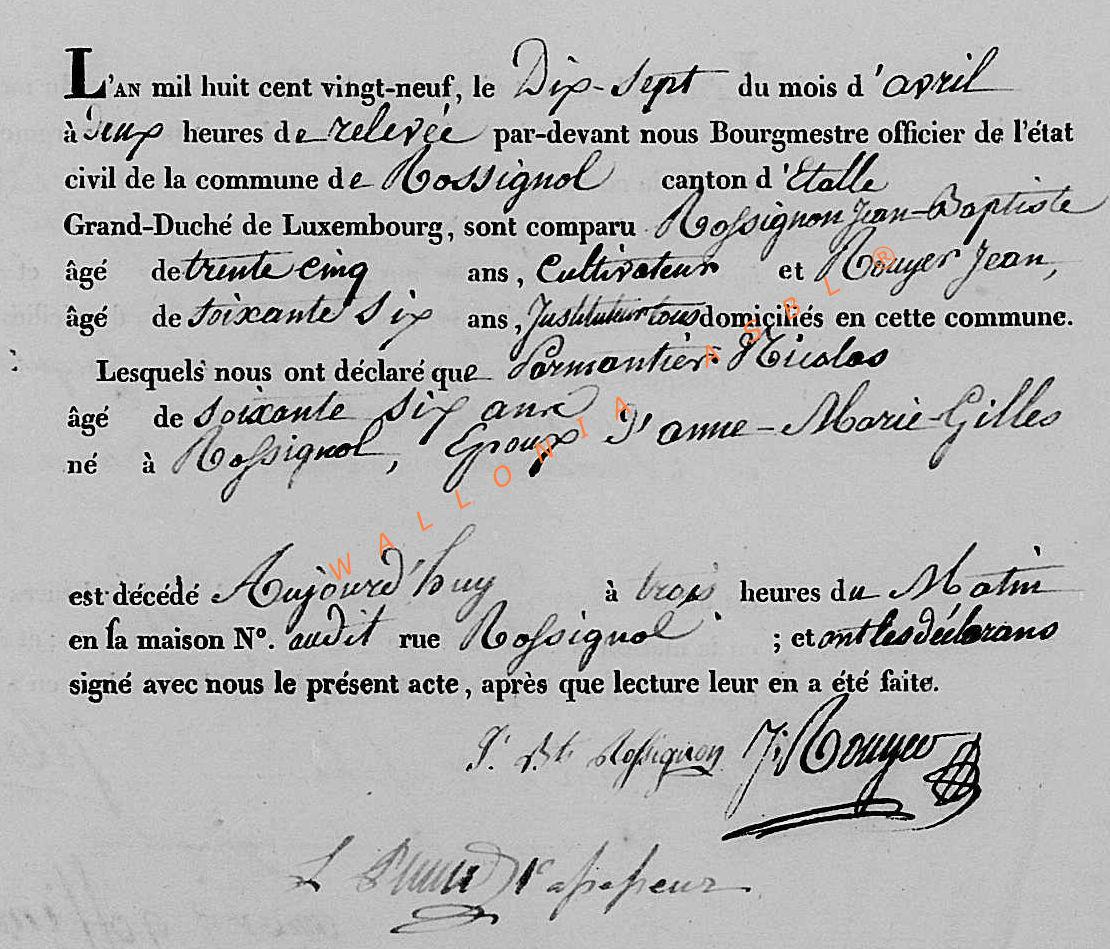 L'AN mil huit cent vingt-neuf, le Dix-Sept du mois d'avril
à Deux heures de relevée par-devant nous Bourgmestre officier de l'état
civil de la commune de Rossignol canton d'Etalle
Grand-Duché de Luxembourg, sont comparu Rossignon Jean-Baptiste
âgé de trente cinq ans, Cultivateur et Rouyer Jean,
âgé de soixante Six ans, Instituteur tous domiciliés en cette commune.
Lesquels nous ont déclaré que Parmantier Nicolas
âgé de soixante Six ans
né à Rossignol, Epoux D'anne-Marie-Gilles
est décédé Aujourd'huy à trois heures du Matin
en sa maison N°. audit rue Rossignol ; et ont les déclarans
signé avec nous le présent acte, après que lecture leur en a été faite.
J. Bte Rossignon J. Rouyer
WALLONIA ASBL ®